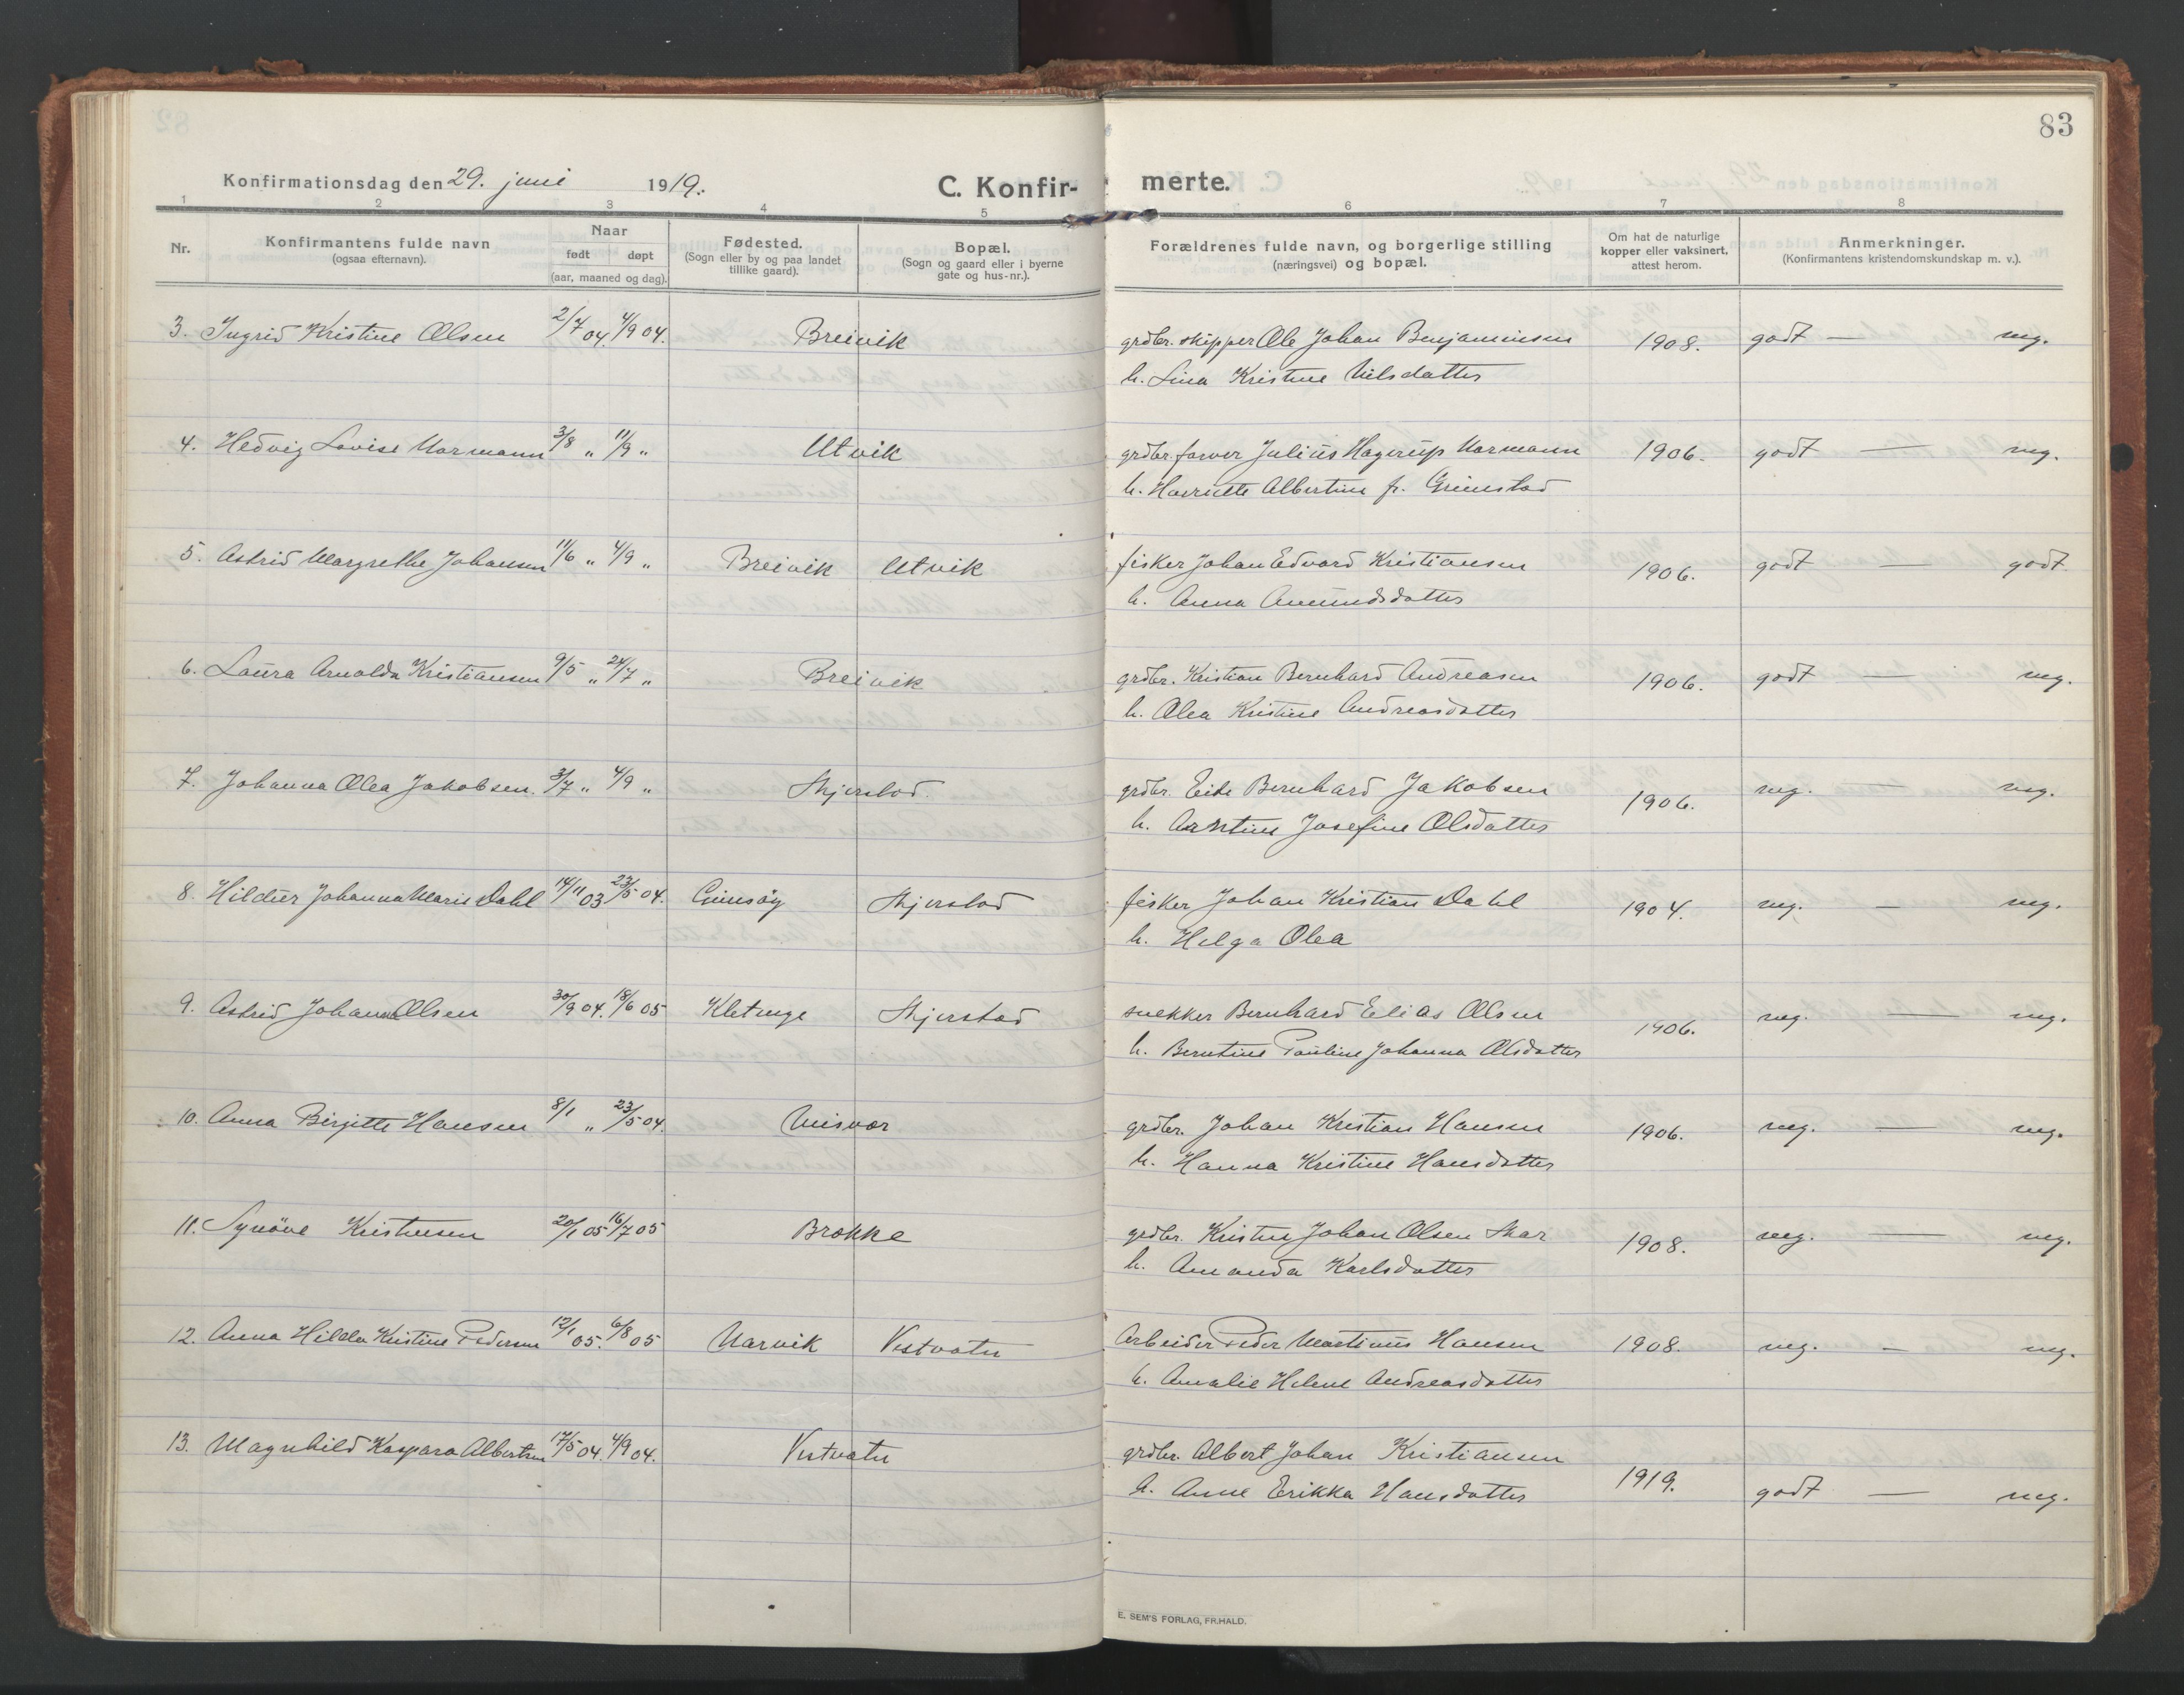 83
Konfirmationsdag den 29. juni 1919.
C. Konfir- merte.
1 2 3 4 5 6 7 8
Nr.
Konfirmantens fulde navn
(ogsaa efternavn).
Naar
født døpt
(aar, maaned og dag).
Fødested.
(Sogn eller by og paa landet
tillike gaard).
Bopæl.
(Sogn og gaard eller i byerne
gate og hus-nr.).
Forældrenes fulde navn, og borgerlige stilling
(næringsvei) og bopæl.
Om hat de naturlige
kopper eller vaksinert,
attest herom.
Anmerkninger.
(Konfirmantens kristendomskundskap m. v.).
3. Ingrid Kristine Olsen 2/7 04. 4/9 04. Breivik grdbr. skipper Ole Johan Benjaminsen 1908. godt — mg.
h. Lina Kristine Nilsdatter
4. Hedvig Lovise Normann 3/8 " 11/9 " Utvik grdbr. farver Julius Hagerup Normann 1906. godt — mg.
h. Harriette Albertine f. Grimstad
5. Astrid Margrethe Johansen 11/6 " 4/9 " Breivik Utvik fisker Johan Edvard Kristiansen 1906. godt — godt
h. Anna Amundsdatter
6. Laura Arnolda Kristiansen 9/5 " 24/7 " Breivik grdbr. Kristian Bernhard Andreasen 1906. godt — mg.
h. Olea Kristine Andreasdatter
7. Johanna Olea Jakobsen. 3/7 " 4/9 " Skjerstad. grdbr. Eide Bernhard Jakobsen 1906. mg. — mg.
h. Arntine Josefine Olsdatter
8. Hildur Johanna Marie Dahl 14/11 03 23/5 04. Gimsöy Skjerstad fisker Johan Kristian Dahl 1904. mg. — mg.
h. Helga Olea
9. Astrid Johanna Olsen 30/9 04. 18/6 05 Kletunge Skjerstad snekker Bernhard Elias Olsen 1906. mg. — mg.
h. Berntine Pauline Johanna Olsdatter
10. Anna Birgitte Hansen 8/1 " 23/5 04. Misvær grdbr. Johan Kristian Hansen 1906. mg. — mg.
h. Hanna Kristine Hansdatter
11. Synöve Kristensen 20/1 05 16/7 05 Brekke grdbr. Kristen Johan Olsen Skar 1908. mg. — mg.
h. Amanda Karlsdatter
12. Anna Hilda Kristine Pedersen 12/1 05. 6/8 05 Narvik Vestvatn Arbeider Peder Martinus Hansen 1908. mg. — mg.
h. Amalie Helene Andreasdatter
13. Magnhild Kaspara Albertsen 17/5 04. 4/9 04. Vestvatn grdbr. Albert Johan Kristiansen 1919. godt — mg.
h. Anne Erikka Hansdatter
E. SEM'S FORLAG, FR.HALD.